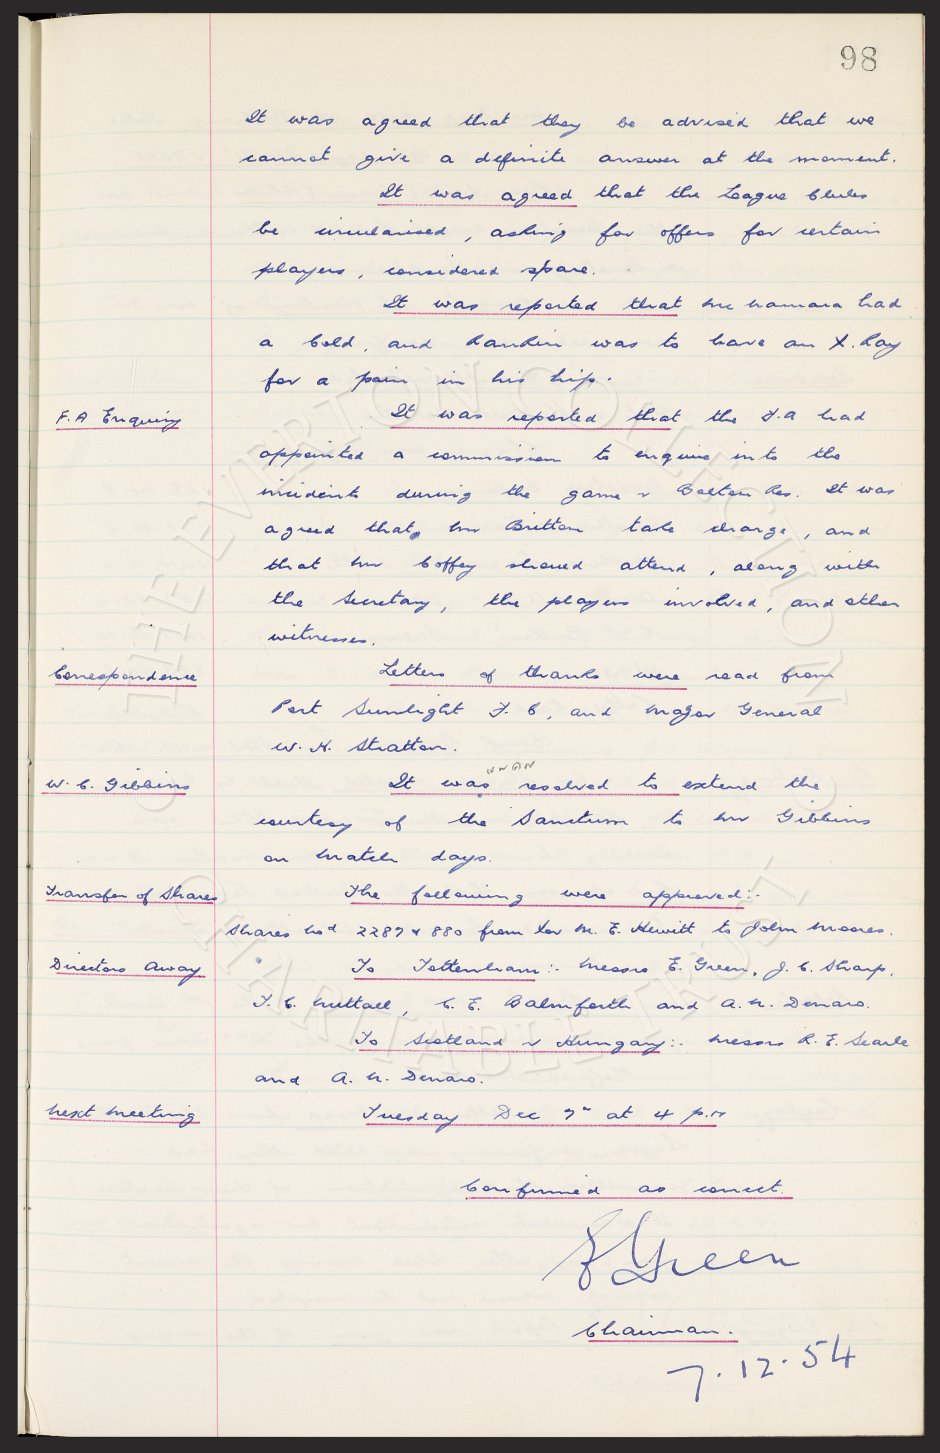 98
It was agreed that they be advised that we
cannot give a definite answer at the moment.
It was agreed that the League Clubs
be circularised, asking for offers for certain
players, considered spare.
It was reported that McNamara had
a Cold, and Rankin was to have an X.Ray
for a pain in his hip.
F.A Enquiry
It was reported that the F.A had
appointed a commission to enquire into the
incidents during the game v Bolton Res. It was
agreed that Mr Britton take charge, and
that Mr Coffey should attend, along with
the Secretary, the players involved, and other
witnesses.
Correspondence
Letters of thanks were read from
Port Sunlight F.C, and Major General
W.H. Stratton.
W.C. Gibbins
UNAN
It was resolved to extend the
courtesy of the Sanctum to Mr Gibbins
on Match days.
Transfer of Shares
The following were approved:-
Shares Nod 2287 & 880 from M. E. Hewitt to John Moores.
Directors Away
To Tottenham:- Messrs E. Green, J.C. Sharp,
F.C. Nuttall, C.E. Balmforth and A.N. Denaro.
To Scotland v Hungary:- Messrs R.E. Searle
and A.N. Denaro.
Next Meeting
Tuesday Dec 7th at 4 p.m
Confirmed as correct.
E Green
Chairman.
7.12.54
THE EVERTON COLLECTION
CHARITABLE TRUST